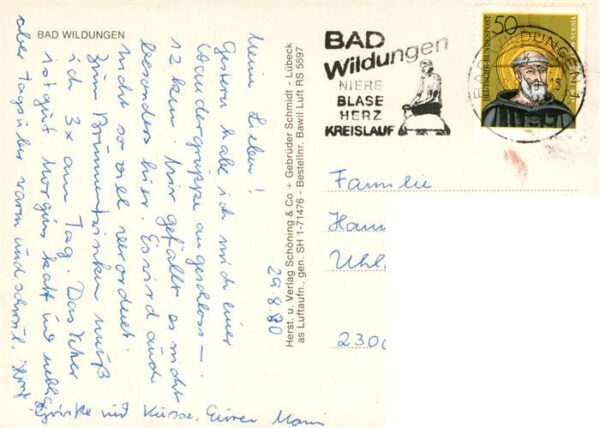 BAD WILDUNGEN
29.8.80
Meine Lieben!
Gestern habe ich mich einer
Wandergruppe angeschlossen.
12 km. Mir gefällt es nicht
besonders hier. Es wird auch
nicht so viel verordnet.
Zum Brunnentrinken muß
ich 3x am Tag. Das Wetter
ist gut. Morgens kalt und neblig,
aber tagsüber warm und schwül.
Grüße und Küsse. Eure
Herst. u. Verlag Schöning & Co + Gebrüder Schmidt - Lübeck
as Luftaufn., gen. SH 1-71476 - Bestellnr. Bawil Luft RS 5597
BAD
Wildungen
NIERE
BLASE
HERZ
KREISLAUF
50
DEUTSCHE BUNDESPOST
BAD WILDUNGEN 1
Familie
Hann
Uhl
2300